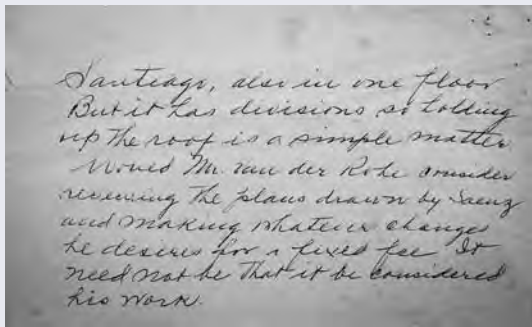 Santiago, also in one floor
But it has divisions so holding
up the roof is a simple matter.
Would Mr. van der Rohe consider
reviewing the plans drawn by Saenz
and making whatever changes
he desires for a fixed fee It
need not be that it be considered
his work.